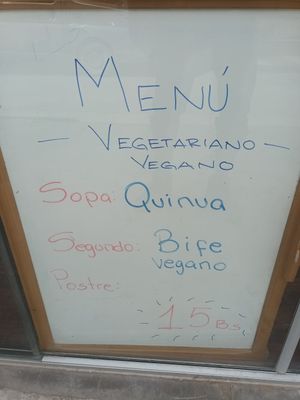 MENÚ
— VEGETARIANO —
VEGANO
Sopa: Quinua
Segundo: Bife
vegano
Postre:
15 Bs